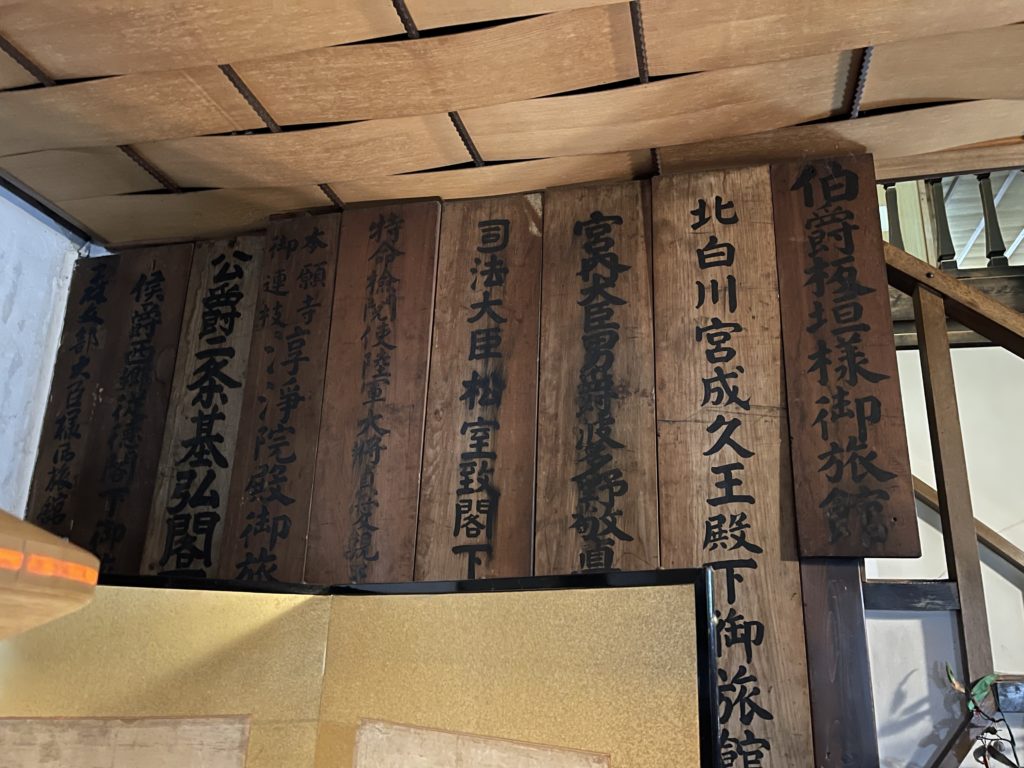 伯爵板垣様御旅館
北白川宮成久王殿下御旅館
宮内大臣男爵波多野敬直
司法大臣松室致閣下
特命検閲使陸軍大将
本願寺
御連枝淳淨院殿御旅
公爵二条基弘閣
侯爵西郷従徳閣下御
大臣様御旅館